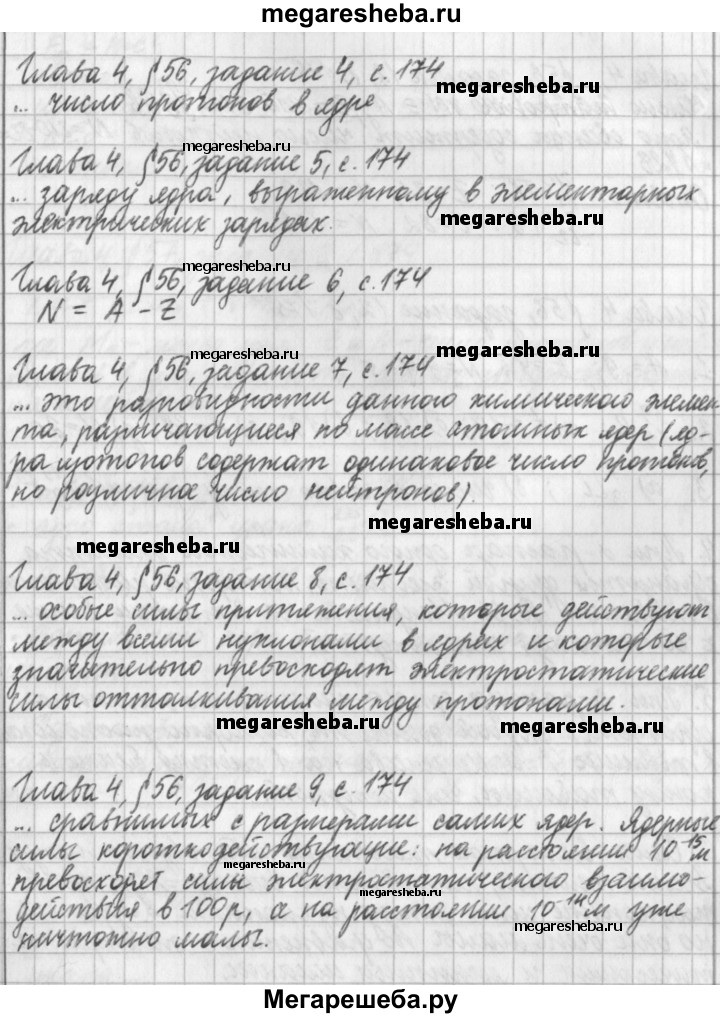 megaresheba.ru
Глава 4, §56, задание 4, с. 174
megaresheba.ru
... число протонов в ядре
megaresheba.ru
Глава 4, §56, задание 5, с. 174
megaresheba.ru
... заряду ядра, выраженному в элементарных
электрических зарядах.
megaresheba.ru
megaresheba.ru
Глава 4, §56, задание 6, с. 174
N = A - Z
megaresheba.ru
megaresheba.ru
Глава 4, §56, задание 7, с. 174
... это разновидности данного химического элемен-
та, различающиеся по массе атомных ядер (яд-
ра изотопов содержат одинаковое число протонов,
но различное число нейтронов).
megaresheba.ru
megaresheba.ru
Глава 4, §56, задание 8, с. 174
... особые силы притяжения, которые действуют
между всеми нуклонами в ядрах и которые
значительно превосходят электростатические
силы отталкивания между протонами.
megaresheba.ru
megaresheba.ru
Глава 4, §56, задание 9, с. 174
... сравнимых с размерами самих ядер. Ядерные
силы короткодействующие: на расстоянии 10⁻¹⁵м
megaresheba.ru
превосходят силы электростатического взаимо-
megaresheba.ru
действия в 100 р, а на расстоянии 10⁻¹⁴м уже
megaresheba.ru
ничтожно малы.
Мегарешеба.ру